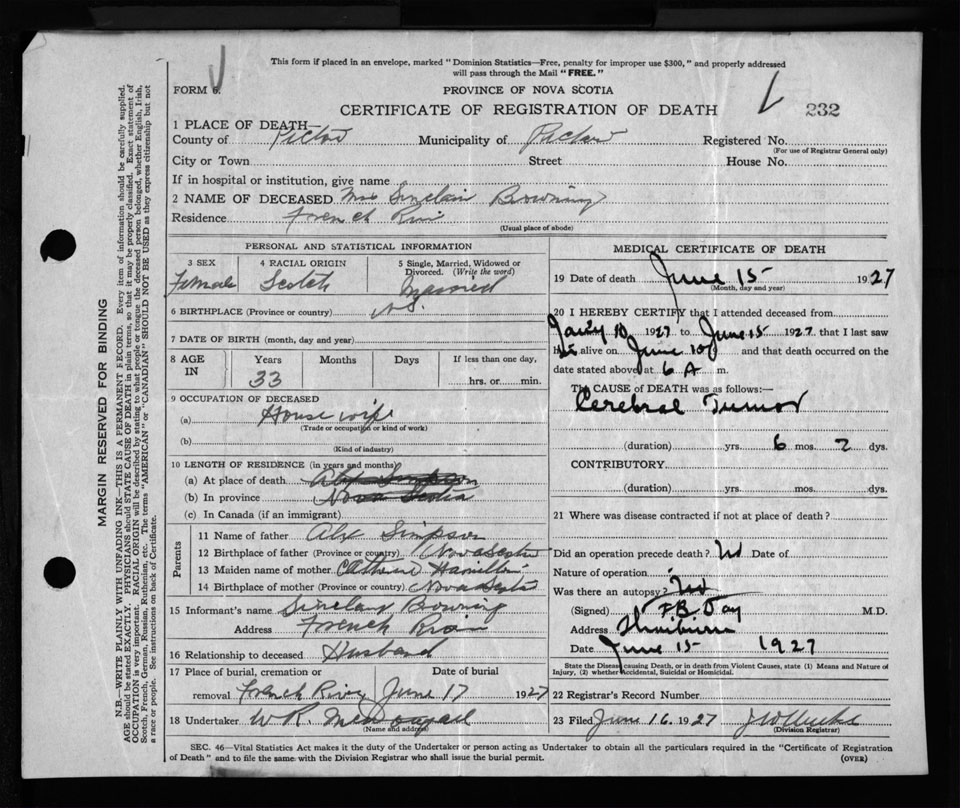 This form if placed in an envelope, marked "Dominion Statistics—Free, penalty for improper use $300," and properly addressed
will pass through the Mail "FREE."
FORM 6.
PROVINCE OF NOVA SCOTIA
CERTIFICATE OF REGISTRATION OF DEATH
232
1 PLACE OF DEATH—
County of Pictou Municipality of Pictou Registered No.
(For use of Registrar General only)
City or Town Street House No.
If in hospital or institution, give name
2 NAME OF DECEASED Mrs Sinclair Browning
Residence French River
(Usual place of abode)
PERSONAL AND STATISTICAL INFORMATION
3 SEX 4 RACIAL ORIGIN 5 Single, Married, Widowed or
Divorced. (Write the word)
Female Scotch Married
6 BIRTHPLACE (Province or country) N.S.
7 DATE OF BIRTH (month, day and year)
8 AGE IN Years Months Days If less than one day,
33 hrs. or min.
9 OCCUPATION OF DECEASED
(a) House wife
(Trade or occupation or kind of work)
(b)
(Kind of industry)
10 LENGTH OF RESIDENCE (in years and months)
(a) At place of death Alex Simpson
(b) In province Nova Scotia
(c) In Canada (if an immigrant)
Parents
11 Name of father Alex Simpson
12 Birthplace of father (Province or country) Nova Scotia
13 Maiden name of mother Catherine Hamilton
14 Birthplace of mother (Province or country) Nova Scotia
15 Informant's name Bowring
Address French River
16 Relationship to deceased Husband
17 Place of burial, cremation or Date of burial
removal French River June 17 1927
18 Undertaker W R.
(Name and address)
MEDICAL CERTIFICATE OF DEATH
19 Date of death June 15 1927
(Month, day and year)
20 I HEREBY CERTIFY that I attended deceased from
10 1927 to June 15 1927 that I last saw
alive on June 10 and that death occurred on the
date stated above at 6 A m.
The CAUSE OF DEATH was as follows:—
Cerebral Tumor
(duration) yrs. 6 mos. 2 dys.
CONTRIBUTORY
(duration) yrs. mos. dys.
21 Where was disease contracted if not at place of death?
Did an operation precede death? No Date of
Nature of operation
Was there an autopsy? No
(Signed) F.B. Day M.D.
Address
Date June 15 1927
State the Disease causing Death, or in death from Violent Causes, state (1) Means and Nature of
Injury, (2) whether Accidental, Suicidal or Homicidal.
22 Registrar's Record Number
23 Filed June 16 1927
(Division Registrar)
SEC. 46—Vital Statistics Act makes it the duty of the Undertaker or person acting as Undertaker to obtain all the particulars required in the "Certificate of Registration
of Death" and to file the same with the Division Registrar who shall issue the burial permit. (OVER)
MARGIN RESERVED FOR BINDING
N.B.—WRITE PLAINLY WITH UNFADING INK—THIS IS A PERMANENT RECORD. Every item of information should be carefully supplied.
AGE should be stated EXACTLY. PHYSICIANS should STATE CAUSE OF DEATH in plain terms, so that it may be properly classified. Exact statement of
OCCUPATION is very important. RACIAL ORIGIN will be described by stating to what people or tongue the deceased person belonged, whether English, Irish,
Scotch, French, German, Russian, Ruthenian, etc. The terms "AMERICAN" or "CANADIAN" SHOULD NOT BE USED as they express citizenship but not
a race or people. See instructions on back of Certificate.